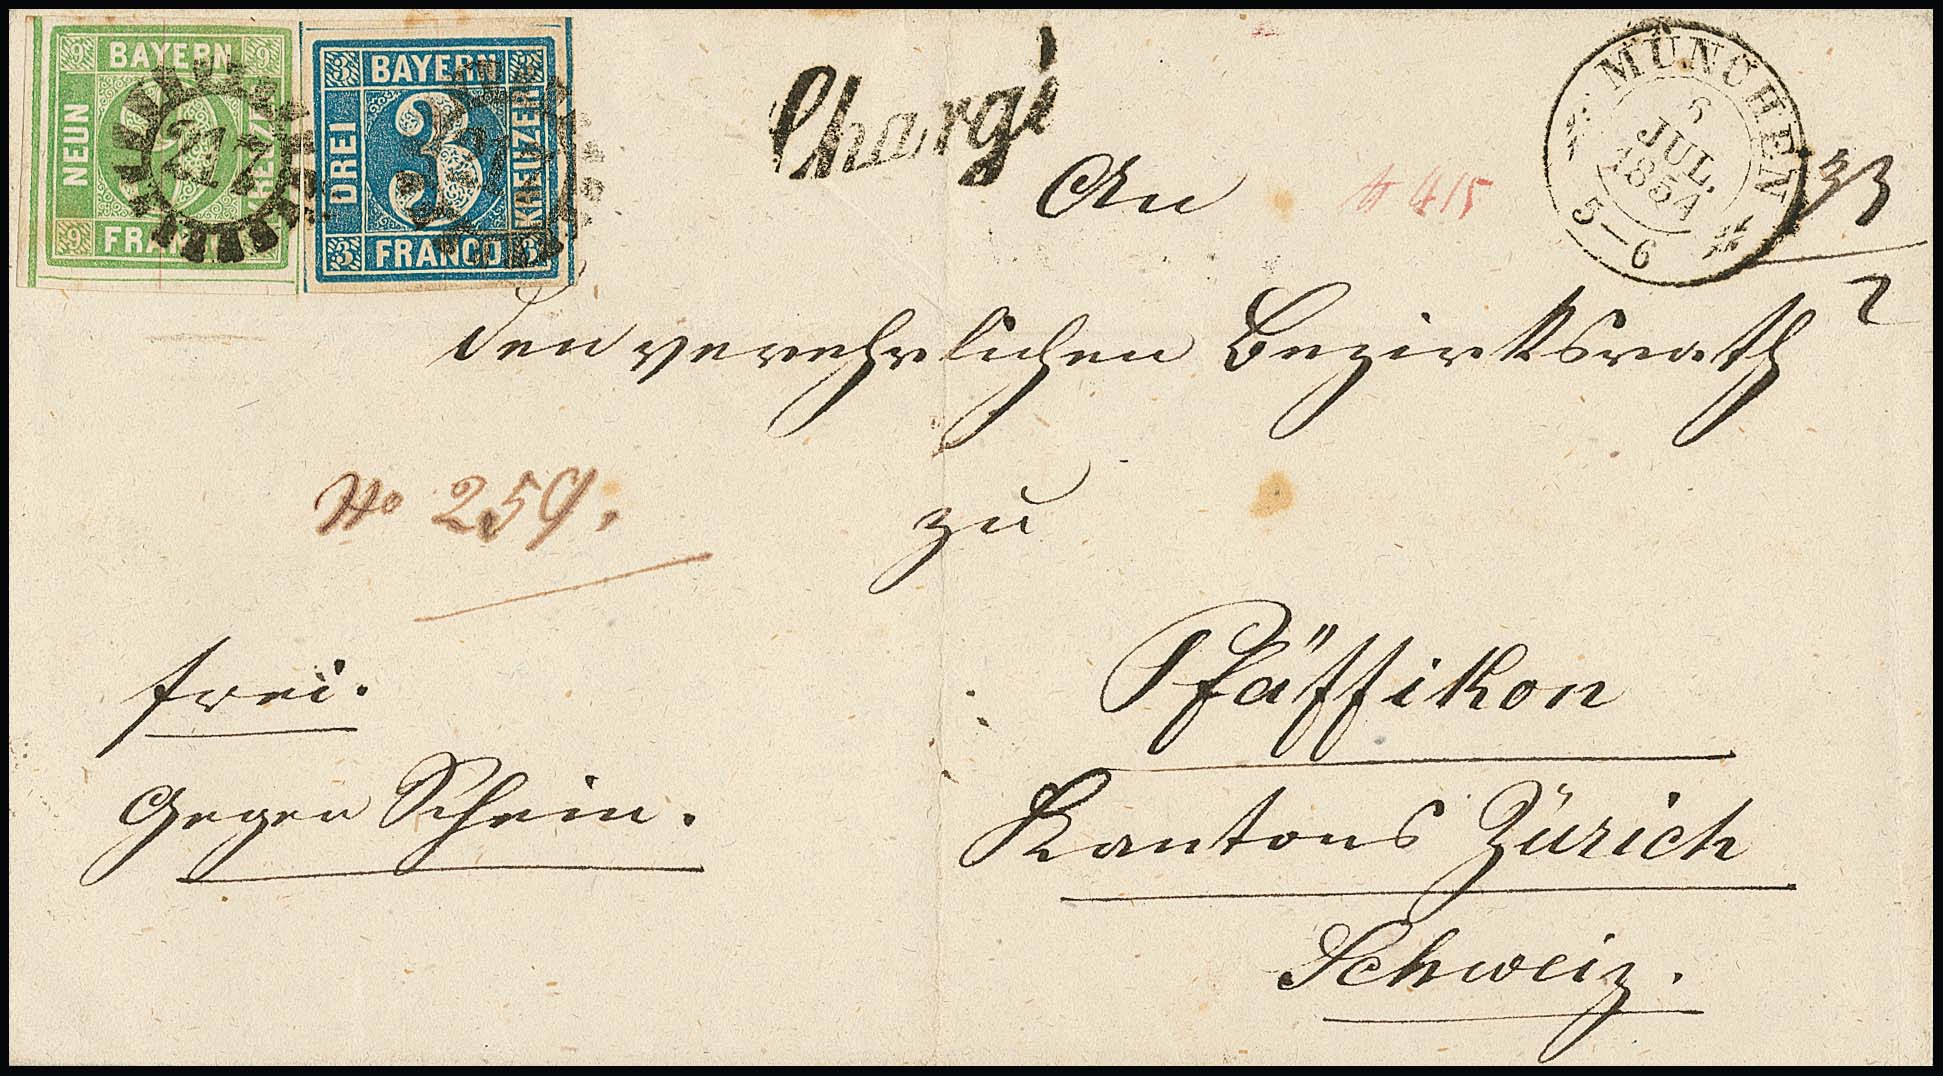 9 BAYERN 9
NEUN
KREUZER
9 FRANCO
217
3 BAYERN
DREI
KREUZER
3 FRANCO 3
Chargé
MÜNCHEN
6
JUL.
1854
5—6
An
№ 415
33
2
den verehrlichen Bezirksrath
№ 259.
zu
frei.
Pfäffikon
gegen Schein.
Kantons Zürich
Schweiz.